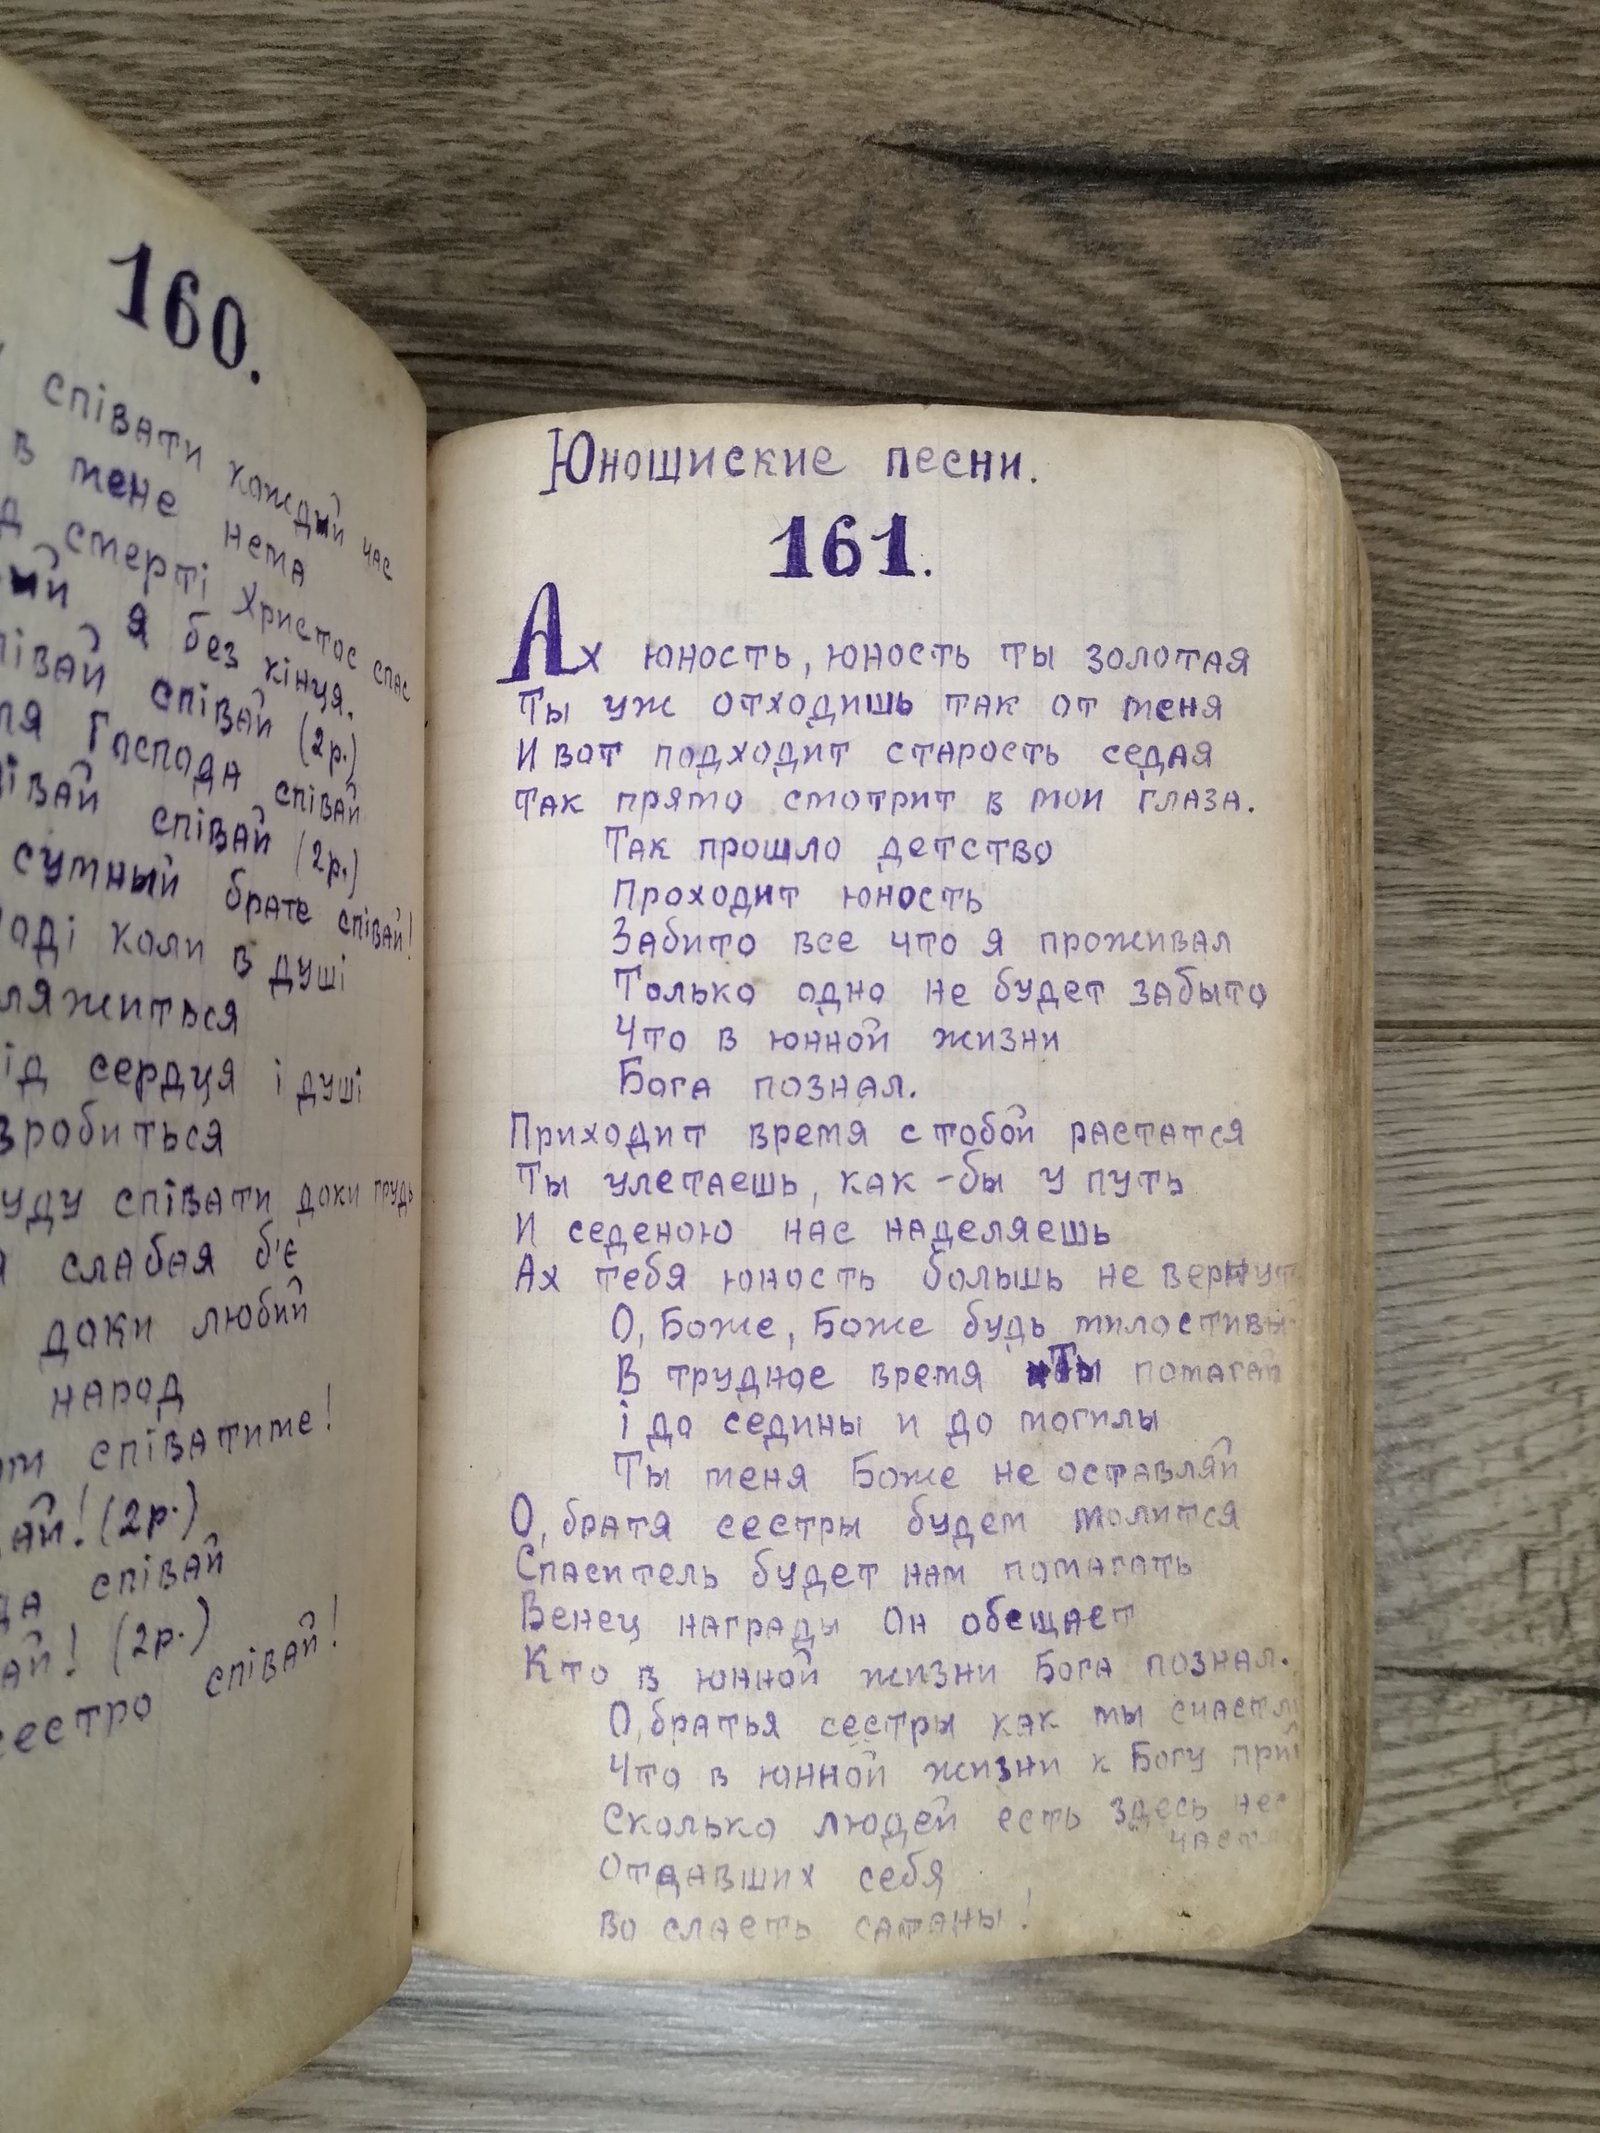 160.
співати кождый час
в мене нема
смерті Христос спас
я без кінця.
співай (2р.)
Господа співай
співай (2р.)
сумный брате співай!
коли в душі
від сердця і душі
співати доки грудь
слабая б'є
доки любий
народ
співатиме!
(2р.)
співай
(2р.)
співай!
Юношиские песни.
161.
Ах юность, юность ты золотая
Ты уж отходишь так от меня
И вот подходит старость седая
Так прямо смотрит в мои глаза.
Так прошло детство
Проходит юность
Забито все что я проживал
Только одно не будет забыто
Что в юнной жизни
Бога познал.
Приходит время с тобой растатся
Ты улетаешь, как-бы у путь
И седеною нас наделяешь
Ах тебя юность большь не вернут
О, Боже, Боже будь
В трудное время Ты помагай
і до седины и до могилы
Ты меня Боже не оставляй
О, братя сестры будем молится
Спаситель будет нам помагать
Венец награды Он обещает
Кто в юнной жизни Бога познал.
О, братья сестры как мы
Что в юнной жизни к Богу
Сколько людей есть здесь
Отдавших себя
во сласть сатаны!